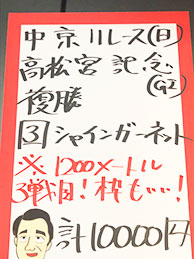 中京11レース(日)
高松宮記念(GI)
複勝
3 シャインガーネット
※1200メートル
3戦目!枠も...!
計10000円